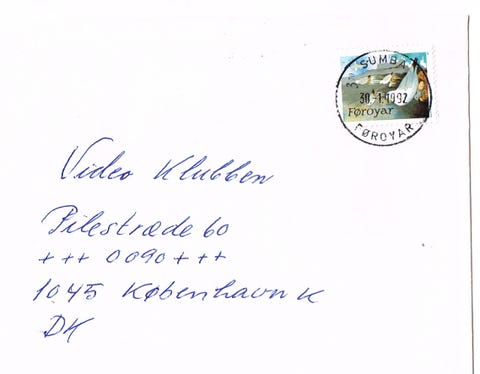 SUMBA
30.-1.1992
Føroyar
FØROYAR
Video Klubben
Pilestræde 60
+++ 0090 +++
1045 København K
DK